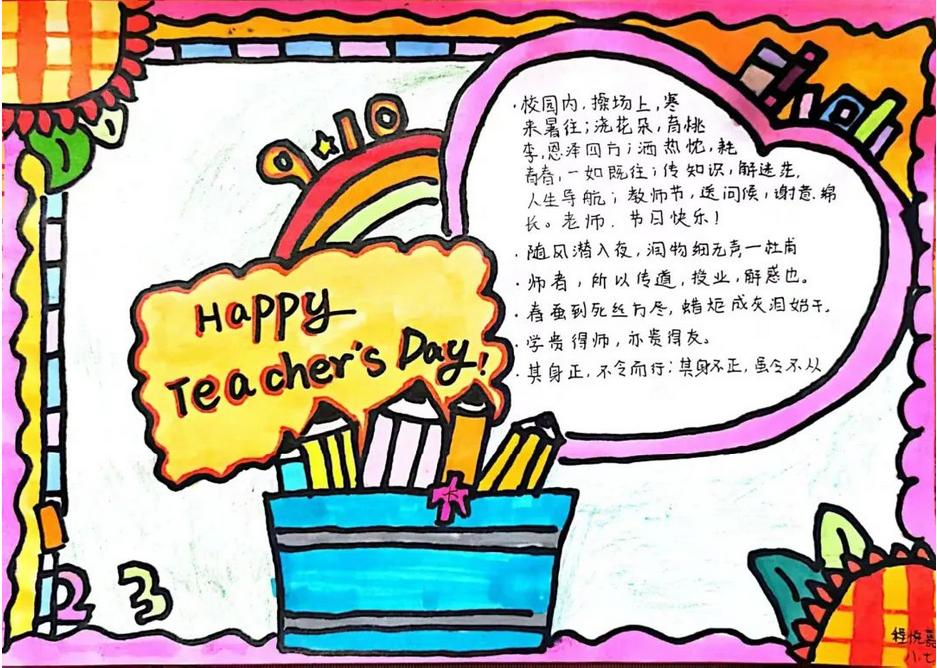 9.10
Happy
Teacher's Day!
·校园内,操场上,寒
来暑往;浇花朵,育桃
李,恩泽四方;洒热忱,耗
青春,一如既往;传知识,解迷茫,
人生导航;教师节,送问候,谢意绵
长。老师,节日快乐!
·随风潜入夜,润物细无声一杜甫
·师者,所以传道,授业,解惑也。
·春蚕到死丝方尽,蜡炬成灰泪始干。
·学贵得师,亦贵得友。
·其身正,不令而行;其身不正,虽令不从
2 3
程悦
八.七